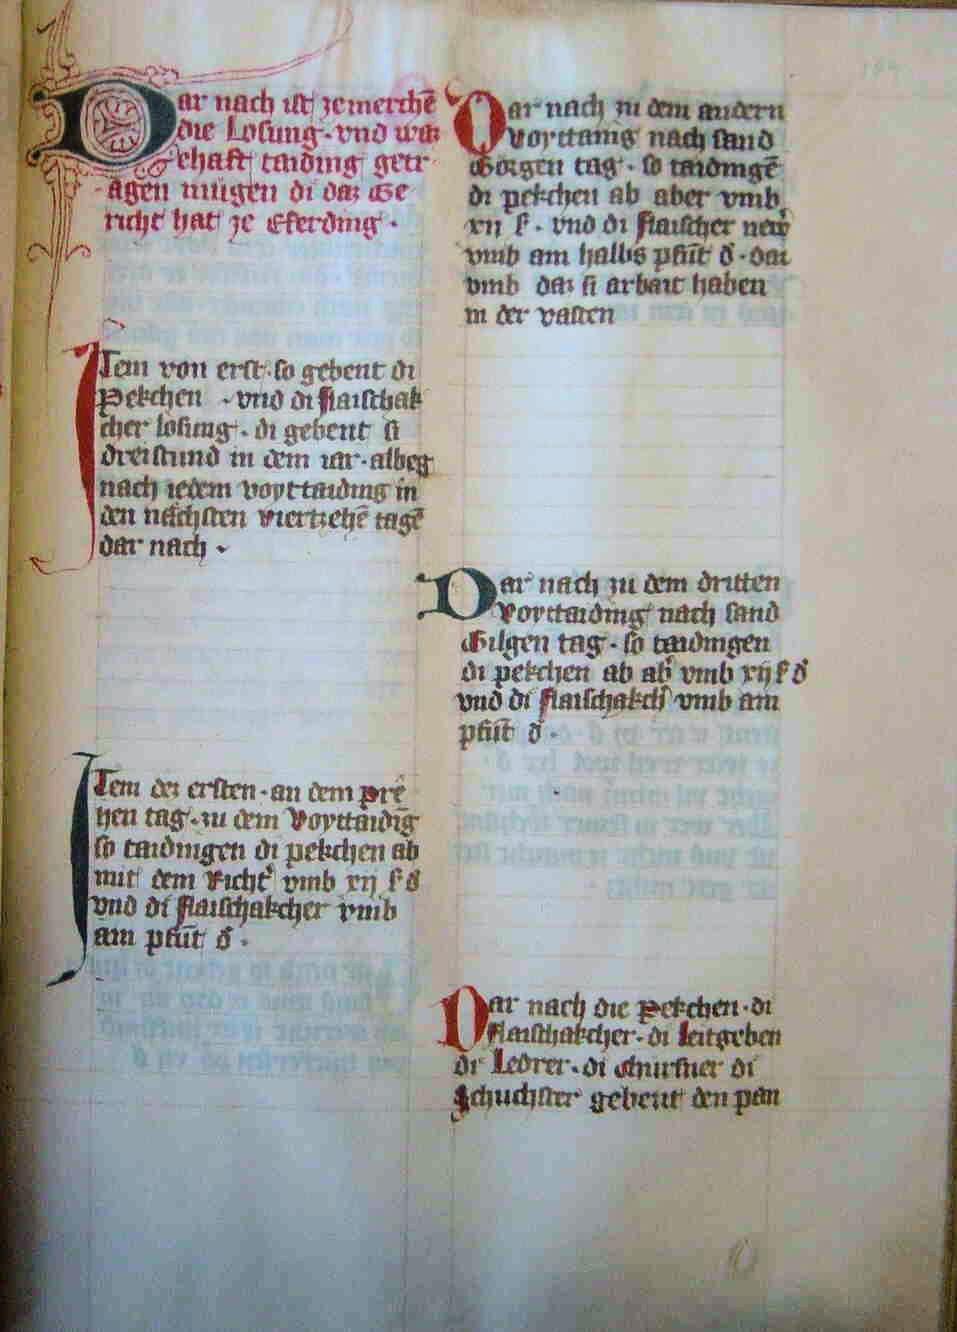 Dar nach ist ze merchē
die Losung · vnd was
ehaft taiding getr
agen mügen di daz Ge
richt hat ze Eferding ·
Item von erst · so gebent di
Pekchen · vnd di flaischak
cher losung · di gebent si
dreistund in dem iar · albeg
nach iedem voyttaiding in
den nächsten viertzehē tagē
dar nach ·
Item dez ersten · an dem prē
hen tag · zu dem Voyttaidīg
so taidingen di pekchen ab
mit dem Richt̄ vmb xij ſ ₰
vnd di flaischakcher vmb
am pfūt ₰ ·
Dar nach zu dem andern
Voyttaing nach sand
Görgen tag · so taidingē
di pekchen ab aber vmb
xij ſ · vnd di flaischer newr
vmb am halbs pfūt ₰ · dar
vmb daz si arbait haben
in der vasten
Dar nach zu dem dritten
Voyttaiding nach sand
Gilgen tag · so taidingen
di pekchen ab ab̄ vmb xij ſ ₰
vnd di flaischakch̄ vmb am
pfūt ₰ ·
Dar nach die Pekchen · di
flaischakcher · di leitgeben
di Ledrer · di Chürsner di
Schuchster gebent den pan